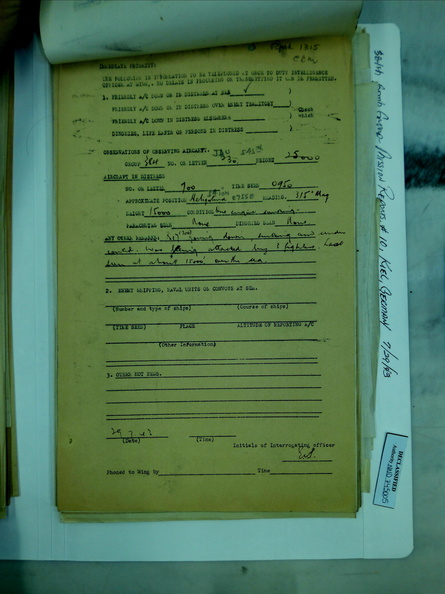 IMMEDIATE PRIORITY:
THE FOLLOWING IS INFORMATION TO BE TELEPHONED AT ONCE TO DUTY INTELLIGENCE
OFFICER AT WING. NO DELAYS IN PROCURING OR TRANSMITTING IT CAN BE PERMITTED.
1. FRIENDLY A/C DOWN OR IN DISTRESS AT SEA )
FRIENDLY A/C DOWN OR IN DISTRESS OVER ENEMY TERRITORY )
FRIENDLY A/C DOWN IN DISTRESS ELSEWHERE ) Check which
DINGHIES, LIFE RAFTS OR PERSONS IN DISTRESS )
OBSERVATIONS OF OBSERVING AIRCRAFT.
GROUP 384 NO. OR LETTER 730 HEIGHT 25000
AIRCRAFT IN DISTRESS
NO. OR LETTER 700 TIME SEEN 0950
APPROXIMATE POSITION Heligoland HEADING. 315° Mag
HEIGHT 15000 CONDITION One engine smoking
PARACHUTES SEEN None DINGHIES SEEN None
ANY OTHER REMARKS: going down, smoking and under
control. Was being attacked by fighters. Last
seen at about 15000 over the sea.
2. ENEMY SHIPPING, NAVAL UNITS OR CONVOYS AT SEA.
(Number and type of ships) (Course of ships)
(TIME SEEN) PLACE ALTITUDE OF REPORTING A/C
(Other Information)
3. OTHER HOT NEWS.
29 7 43
(Date) (Time) Initials of Interrogating officer
Phoned to Wing by Time
384th Bomb Group Mission Records #10, Kiel, Germany 7/29/43
DECLASSIFIED
Authority NND 745005